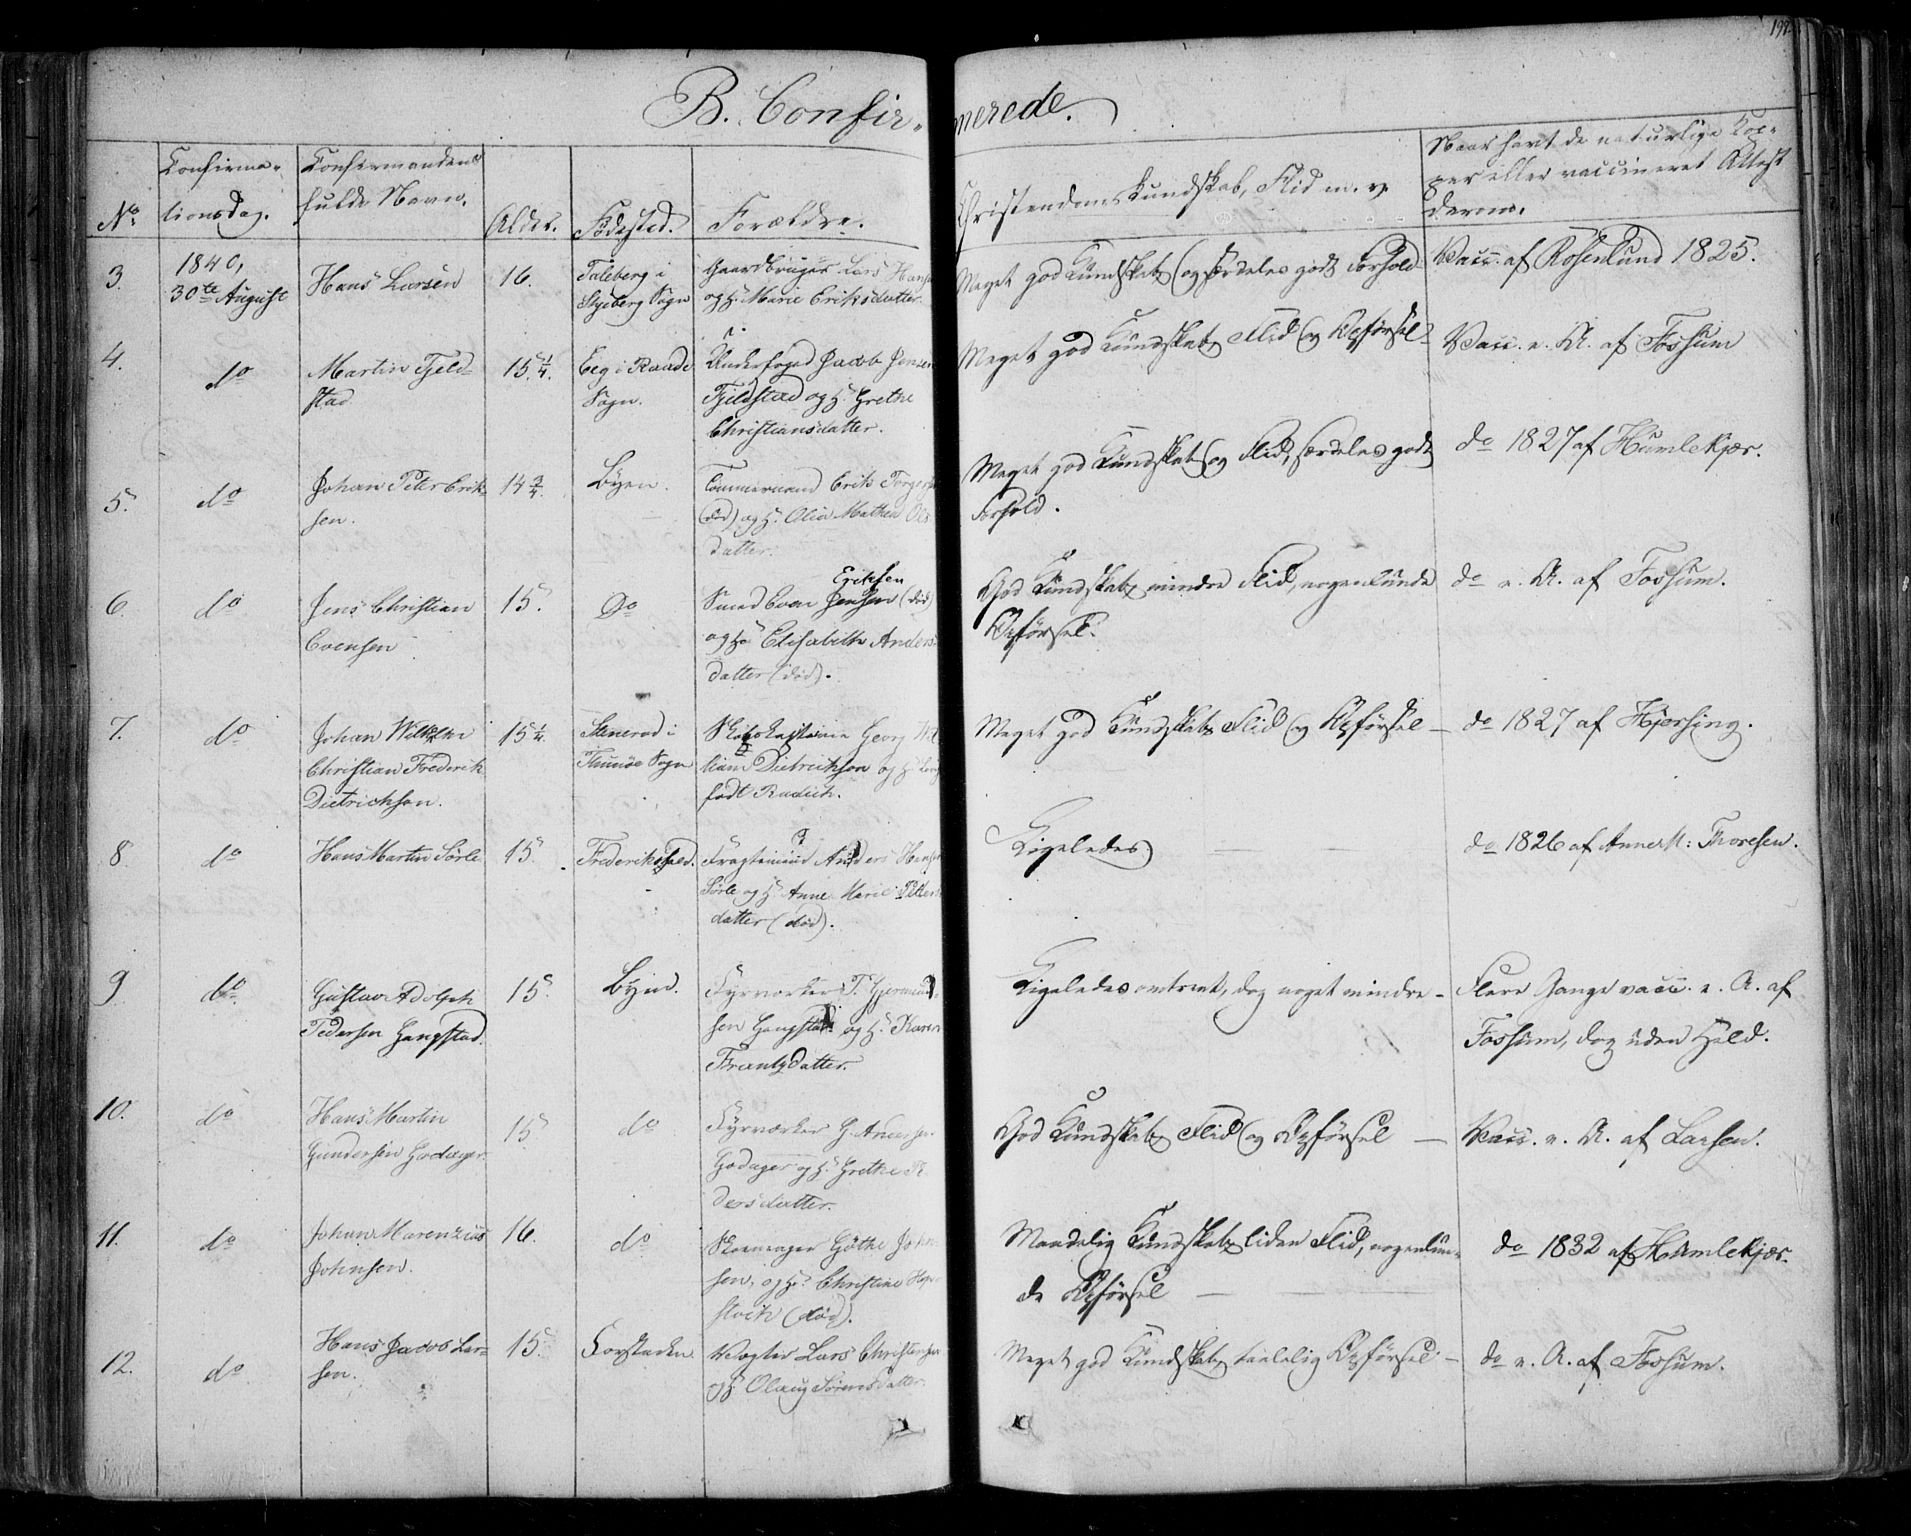 199
B. Confir-
merede.
No
Confirma-
tionsdag.
Confirmandens
fulde Navn.
Alder.
Fødested.
Forældre.
Christendoms Kundskab, Flid m. v.
Naar havt de naturlige Kop-
per eller vaccineret Attest
derom.
3.
1840,
30te August
Hans Larsen
16.
i
Skjeberg Sogn
Gaardbruger Lars Hans
og H. Marie Eriksdatter.
Meget god Kundskab og særdeles godt Forhold
Vacc. af Rosenlund 1825.
4.
do
Martin Fjeld-
stad
15 1/4.
Eeg i Raade
Sogn.
Underfoged Jacob Jensen
Fjeldstad og H. Grethe
Christiansdatter.
Meget god Kundskab, Flid og Opførsel -
Vacc. e. A. af Fossum
5.
do
Johan Peter Erik-
sen.
14 3/4.
Byen.
Tømmermand Erik Torgers
(død) og H. Olia Mathea Ols
datter.
Meget god Kundskab og Flid, særdeles godt
Forhold.
do 1827 af Humlekjær.
6.
do
Jens Christian
Evensen
15.
Do
Eriksen
Smed Even Jensen (død)
og H. Elisabeth Anders-
datter (død).
God Kundskab, mindre Flid, nogenlunde
Opførsel.
do e. A. af Fossum.
7.
do
Johan Wilhelm
Christian Frederik
Dietrichson.
15 1/4.
Stenerød i
Thunøe Sogn
Georg Wil
liam Dietrichson og H.
født Radich.
Meget god Kundskab, Flid og Opførsel -
do 1827 af Hjersing.
8.
do
Hans Martin Sørle
15.
Frederikshald.
Fragtemand Anders Hansen
Sørle og H. Anne Marie Petters
datter (død).
Ligeledes
do 1826 af Anne M: Thoresen.
9.
do
Gustav Adolph
Pedersen Gangstad.
15.
Byen.
Fyrvorker P. Gjermund
sen Gangstad og H. Karen
Frantzdatter.
Ligeledes omtrent, dog noget mindre -
Flere Gange vacc. e. A. af
Fossum, dog uden Held.
10.
do
Hans Martin
Gundersen Godager
15
do
Fyrværker G. Andersen
Godager og H. Grethe A
dersdatter.
God Kundskab, Flid og Opførsel -
Vacc. e. A. af Larsen.
11.
do
Johan Marenzius
Johnsen.
16.
do
Skoemager Gøthe John
sen, og H. Christine
(død).
Maadelig Kundskab, liden Flid, nogenlun-
de Opførsel
do 1832 af Humlekjær.
12.
do
Hans Jacob Lar-
sen.
15.
Forstaden
Vægter Lars Christensen
og H. Olaug Sørensdatter.
Meget god Kundskab, taalelig Opførsel -
do e. A. af Fossum.